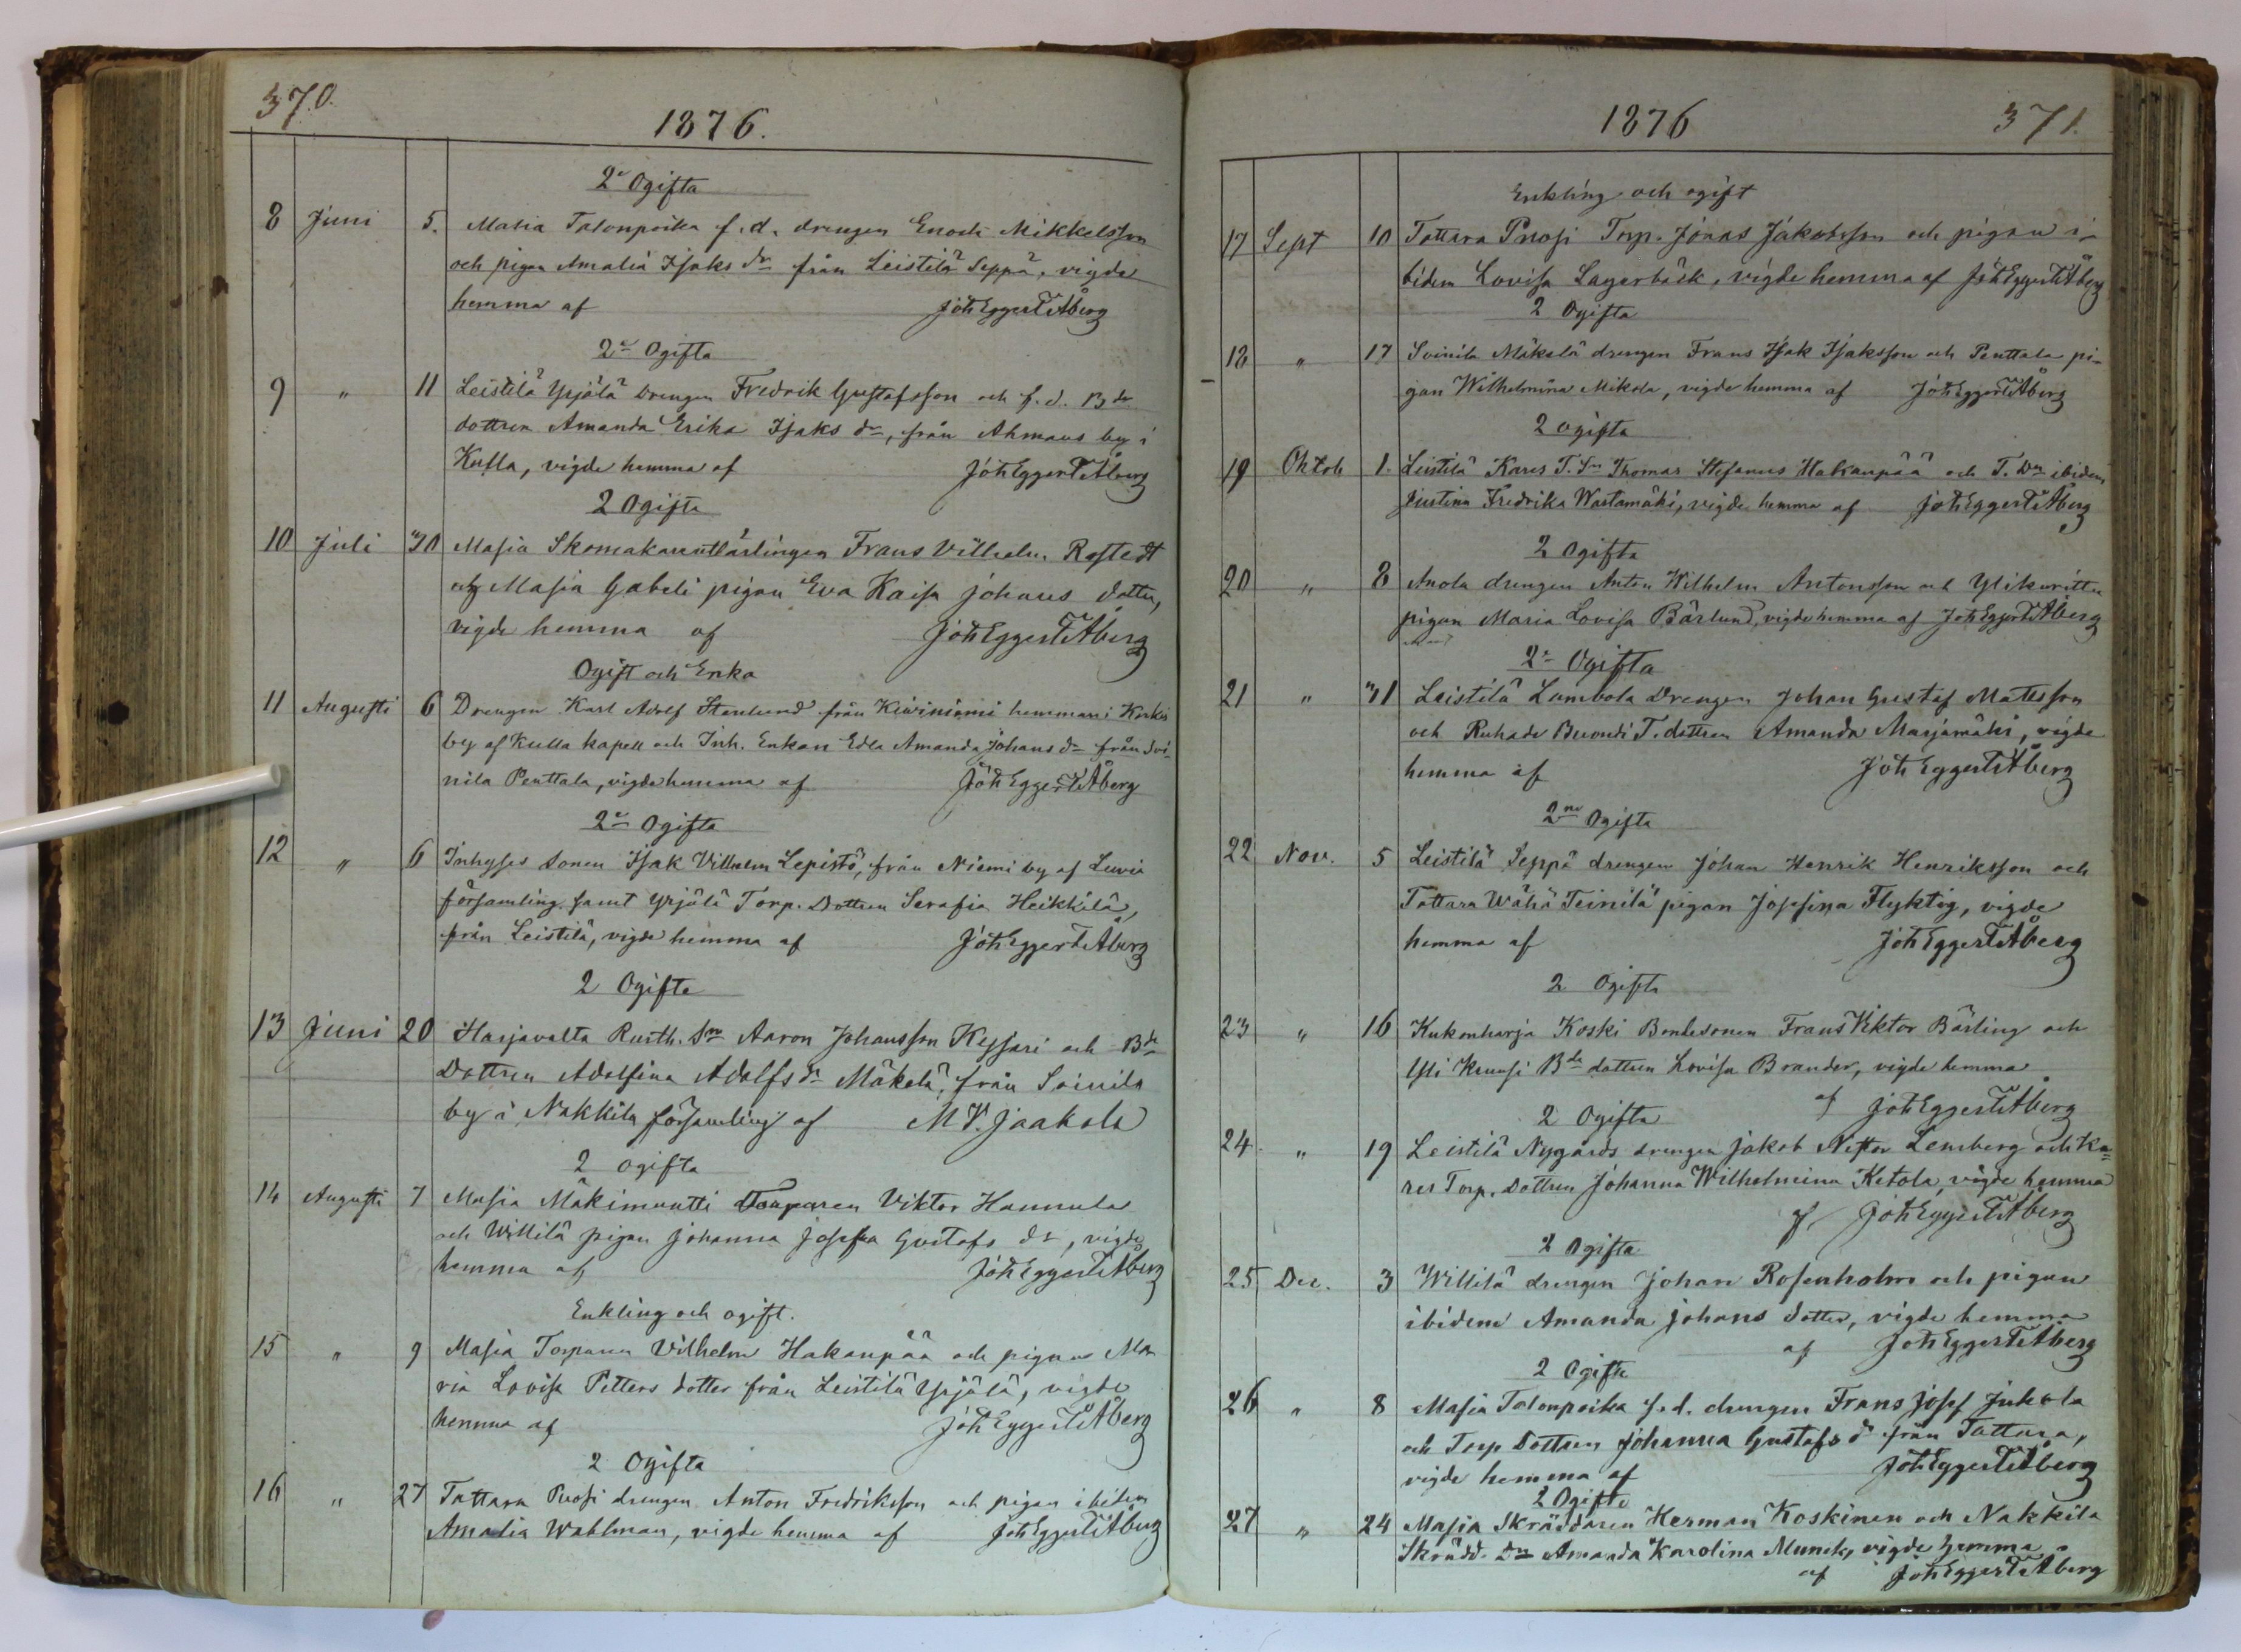 370.
1876.
2e Ogifta
8 Juni 5. Masia Talonpoika f. d. drengen Enoch Mikkelsson
och pigan Amalia Isaks dr från Leistilä Seppä, vigde
hemma af Joh Eggert Åberg
2e Ogifta
9 " 11 Leistilä Yrjälä Drengen Fredrik Gustafsson och f. d. Bde
dottren Amanda Erika Isaks dr, från Ahmaus by i
Kulla, vigde hemma af Joh Eggert Åberg
2 Ogifta
10 Juli 30 Masia Skomakarelärlingen Frans Vilhelm Rostedt
och Masia Gabeli pigan Eva Kaisa Johans dotter,
vigde hemma af Joh Eggert Åberg
Ogift och Enka
11 Augusti 6 Drengen Karl Adolf Stenlund från Kiviniemi hemman i Koskis
by af Kulla kapell och Inh. Enkan Edla Amanda Johans dr från Soi-
nila Penttala, vigde hemma af Joh Eggert Åberg
2e Ogifta
12 " 6 Inhyses sonen Isak Vilhelm Lepistö, från Niemi by af Luvia
församling samt Yrjälä Torp. Dottren Serafia Heikkilä,
från Leistilä, vigde hemma af Joh Eggert Åberg
2 Ogifte
13 Juni 20 Harjavalta Rusth. Sn Aaron Johansson Hessari och Bde
Dottren Adolfina Adolfs dr Mäkelä, från Soinila
by i Nakkila församling af M V. Jaakola
2 ogifta
14 Augusti 7 Masia Mäkimuutti Torparen Viktor Hannula
och Willilä pigan Johanna Josefa Gustafs dr, vigde
hemma af Joh Eggert Åberg
Enkling och ogift.
15 " 9 Masia Torparen Vilhelm Hakanpää och pigan Ma
ria Lovisa Petters dotter från Leistilä Yrjälä, vigde
hemma af Joh Eggert Åberg
2 Ogifta
16 " 27 Tattara Ruosi drengen Anton Fredriksson och pigan ibidem
Amalia Wahlman, vigde hemma af Joh Eggert Åberg
1876
371.
Enkling och ogift
17 Sept 10 Tattara Ruosi Torp. Jonas Jakobsson och pigan i-
bidem Lovisa Lagerbäck, vigde hemma af Joh Eggert Åberg
2 Ogifta
18 " 17 Soinila Mäkelä drengen Frans Isak Isaksson och Penttala pi-
gan Wilhelmina Mikola, vigde hemma af Joh Eggert Åberg
2 ogifta
19 Oktob 1. Leistilä Kares T. Sn Thomas Stefanus Hakanpää och T. Dr ibidem
Justina Fredrika Wastamäki, vigde hemma af Joh Eggert Åberg
2 Ogifta
20 " 8 Anola drengen Anton Wilhelm Antonsson och
pigan Maria Lovisa Bärlund, vigde hemma af Joh Eggert Åberg
2e Ogifta
21 " 31 Leistilä Lambola Drengen Johan Gustaf Mattsson
och Ruhade Buondi T. dottren Amanda Marjamäki, vigde
hemma af Joh Eggert Åberg
2ne Ogifta
22 Nov. 5 Leistilä Seppä drengen Johan Henrik Henriksson och
Tattara Wähä Teinilä pigan Josefina Flyktig, vigde
hemma af Joh Eggert Åberg
2 Ogifta
23 " 16 Kukonharja Koski Bondesonen Frans Viktor Bärling och
Yli Knuusi Bde dottren Lovisa Brander, vigde hemma
af Joh Eggert Åberg
2 Ogifta
24 " 19 Leistilä Nygårds drengen Jakob Nestor Lemberg och Ka-
res Torp. Dottren Johanna Wilhelmina Ketola, vigde hemma
af Joh Eggert Åberg
2 Ogifta
25 Dec. 3 Willilä drengen Johan Rosenholm och pigan
ibidem Amanda Johans dotter, vigde hemma
af Joh Eggert Åberg
2 Ogifte
26 " 8 Masia Talonpoika f. d. drengen Frans Josef Jukola
och Torp Dottren Johanna Gustafs dr från Tattara,
vigde hemma af Joh Eggert Åberg
2 Ogifte
27 " 24 Masia Skräddaren Herman Koskinen och Nakkila
Skrädd. Dr Amanda Karolina Munck, vigde hemma
af Joh Eggert Åberg